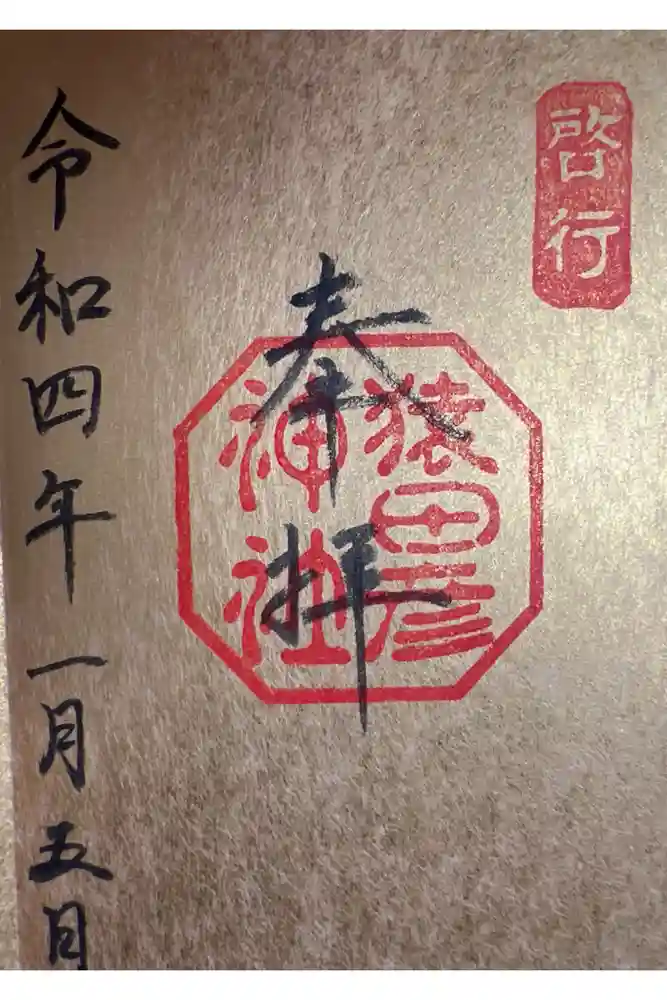 啓行
奉拝
猿田彦
神社
令和四年一月五日